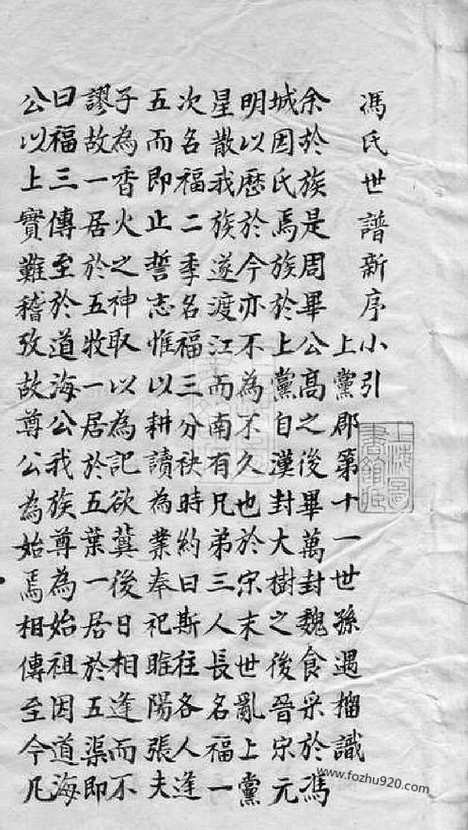 馮氏世譜新序小引
上黨郡第十一世孫遇識
余於族是周畢公高之後畢萬封魏食采於馮
城因氏焉族於上黨自漢封大樹之後晉宋元
明以歷於今亦不為不久也於宋末世亂上黨
星散我族遂渡江而南有凡弟三人長名福一
次名福二季名福三分袂時約曰斯往各人逢
五而即止誓志惟以耕讀為業奉祀睢陽張夫
子為香火之神取以為記欲冀後日相逢而不
謬故一居於五牧一居於五葉一居於五渠即
曰福三傳至於道海公我族尊為始祖因道海
公以上實難稽攷故尊公為始焉相傳至今凡
上海圖
書館藏
www.fozhu920.com